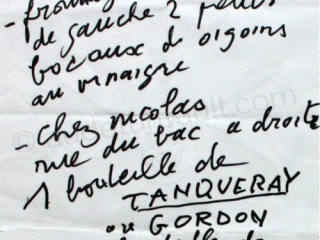 - fromag
de gauche 2 petits
bocaux de oigoins
au vinaigre
- chez nicolas
rue du bac a droite
1 bouteille de
TANQUERAY
ou GORDON